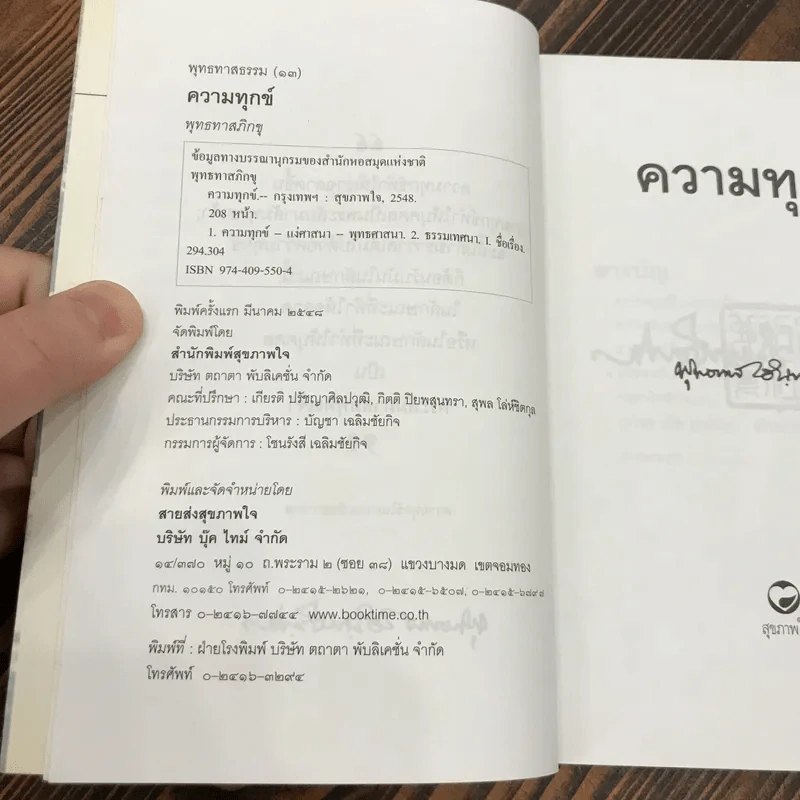 พุทธทาสธรรม (๑๓)
ความทุกข์
พุทธทาสภิกขุ
ข้อมูลทางบรรณานุกรมของสำนักหอสมุดแห่งชาติ
พุทธทาสภิกขุ
ความทุกข์.-- กรุงเทพฯ : สุขภาพใจ, 2548.
208 หน้า.
1. ความทุกข์ – แง่ศาสนา – พุทธศาสนา. 2. ธรรมเทศนา. I. ชื่อเรื่อง.
294.304
ISBN 974-409-550-4
พิมพ์ครั้งแรก มีนาคม ๒๕๔๘
จัดพิมพ์โดย
สำนักพิมพ์สุขภาพใจ
บริษัท ตถาตา พับลิเคชั่น จำกัด
คณะที่ปรึกษา : เกียรติ ปรัชญาศิลปวุฒิ, กิตติ ปิยพสุนทรา, สุพล โล่ห์ชิตกุล
ประธานกรรมการบริหาร : บัญชา เฉลิมชัยกิจ
กรรมการผู้จัดการ : โชนรังสี เฉลิมชัยกิจ
พิมพ์และจัดจำหน่ายโดย
สายส่งสุขภาพใจ
บริษัท บุ๊ค ไทม์ จำกัด
๑๔/๓๗๐ หมู่ ๑๐ ถ.พระราม ๒ (ซอย ๓๘) แขวงบางมด เขตจอมทอง
กทม. ๑๐๑๕๐ โทรศัพท์ ๐-๒๔๑๕-๒๖๒๑, ๐-๒๔๑๕-๖๕๐๗, ๐-๒๔๑๕-๖๗๙๗
โทรสาร ๐-๒๔๑๖-๗๗๔๔ www.booktime.co.th
พิมพ์ที่ : ฝ่ายโรงพิมพ์ บริษัท ตถาตา พับลิเคชั่น จำกัด
โทรศัพท์ ๐-๒๔๑๖-๓๒๙๔
ความทุ
สุขภาพ